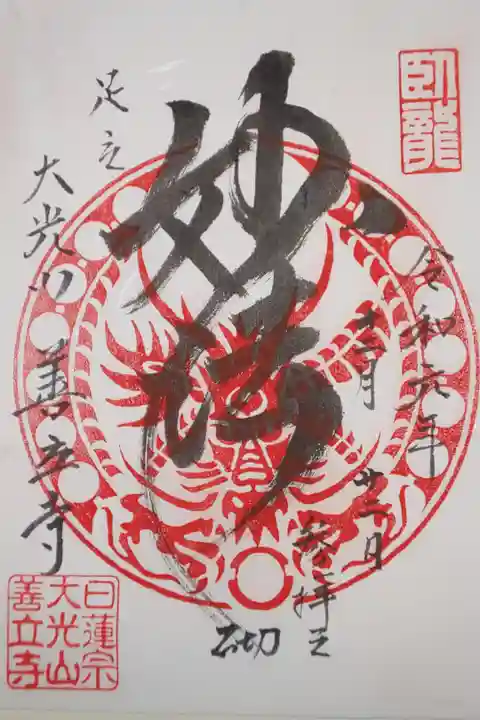 臥龍
令和六年
十二月
廿二日
参拝之
砌
妙法
足立
大光山
善立寺
日蓮宗
大光山
善立寺